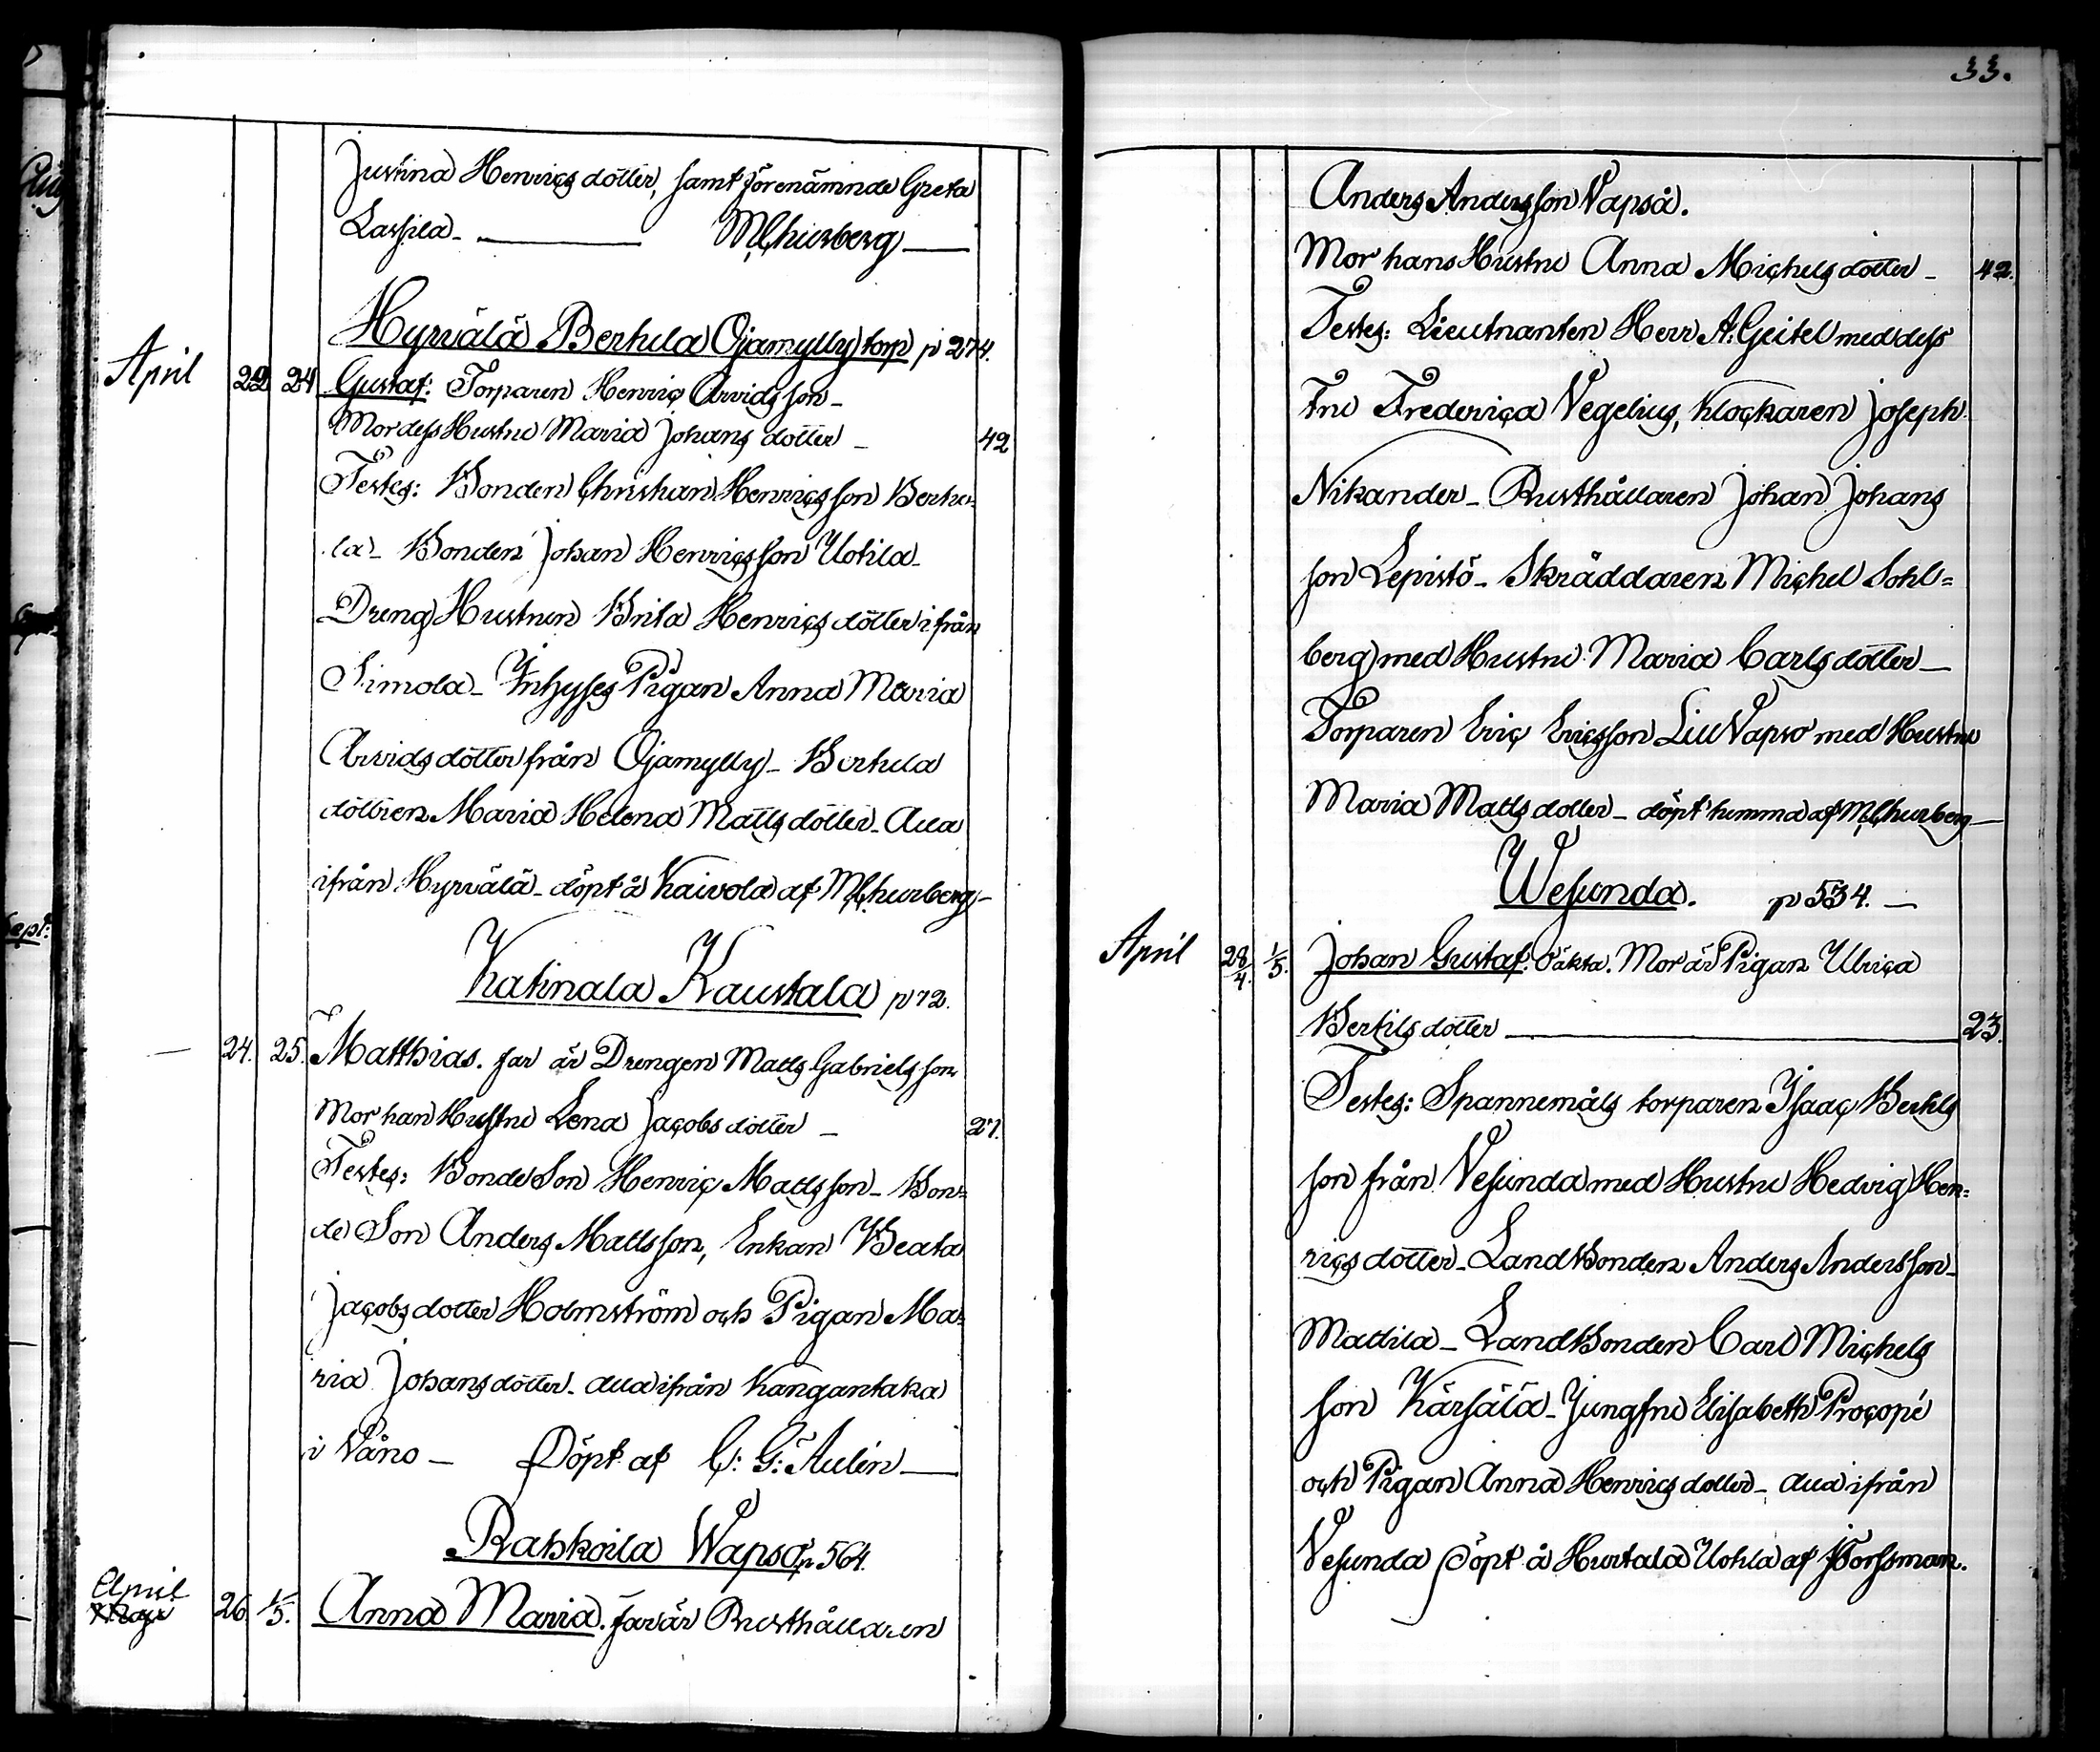 Justina Henrics dotter, samt förenämnde Greta
Lassila_ M Churberg
Hyrvälä Bertula Ojamylly torp p 274.
April 22 24 Gustaf: Torparen Henric Arvids son_
Mor dess Hustru Maria Johans dotter _ 42
Testes: Bonden Christian Henrics son Bertu=
la_ Bonden Johan Henrics son Uotila_
Dreng Hustrun Brita Henrics dotter ifrån
Simola_ Inhyses Pigan Anna Maria
Arvids dotter från Ojamylly_ Bertula
dottren Maria Helena Matts dotter_ alla
ifrån Hyrvälä_ döpt å Kaivola af M Churberg_
Katinala Kaustala p 72.
24. 25. Matthias. far är Drengen Matts Gabriels son
Mor han Hustru Lena Jacobs dotter _ 27.
Testes: Bonde Son Henric Matts son_ Bon=
de Son Anders Matts son, Enkan Beata
Jacobs dotter Holmström och Pigan Ma=
ria Johans dotter_ alla ifrån Kangantaka
i Våno_ Döpt af C: G: Aulén
Rahkoila Wapso p 564.
April
Maji 26. 1/5. Anna Maria. far är Rusthållaren
33.
Anders Anders son Vapså.
Mor hans Hustru Anna Michels dotter _ 42.
Testes: Lieutnanten Herr A: Geitel med dess
Fru Frederica Vegelius, Klockaren Joseph
Nikander_ Rusthållaren Johan Johans
son Lepistö_ Skräddaren Michel Sohl=
berg med Hustru Maria Carls dotter_
Torparen Eric Ericsson Liu Vapso med Hustru
Maria Matts dotter_ döpt hemma af M Churberg
Wesunda. p 534. _
April 28/4. 1/5. Johan Gustaf: Oäkta. Mor är Pigan Ulrica
Bertils dotter 23.
Testes: Spannemåls torparen Isaac Bertils
son från Vesunda med Hustru Hedvig Hen=
rics dotter_ Landbonden Anders Anders son_
Mattila_ Landbonden Carl Michels
son Kärsälä_ Jungfru Elisabeth Procopé
och Pigan Anna Henrics dotter_ alla ifrån
Vesunda Döpt å Hurtala Uotila af Forssman.